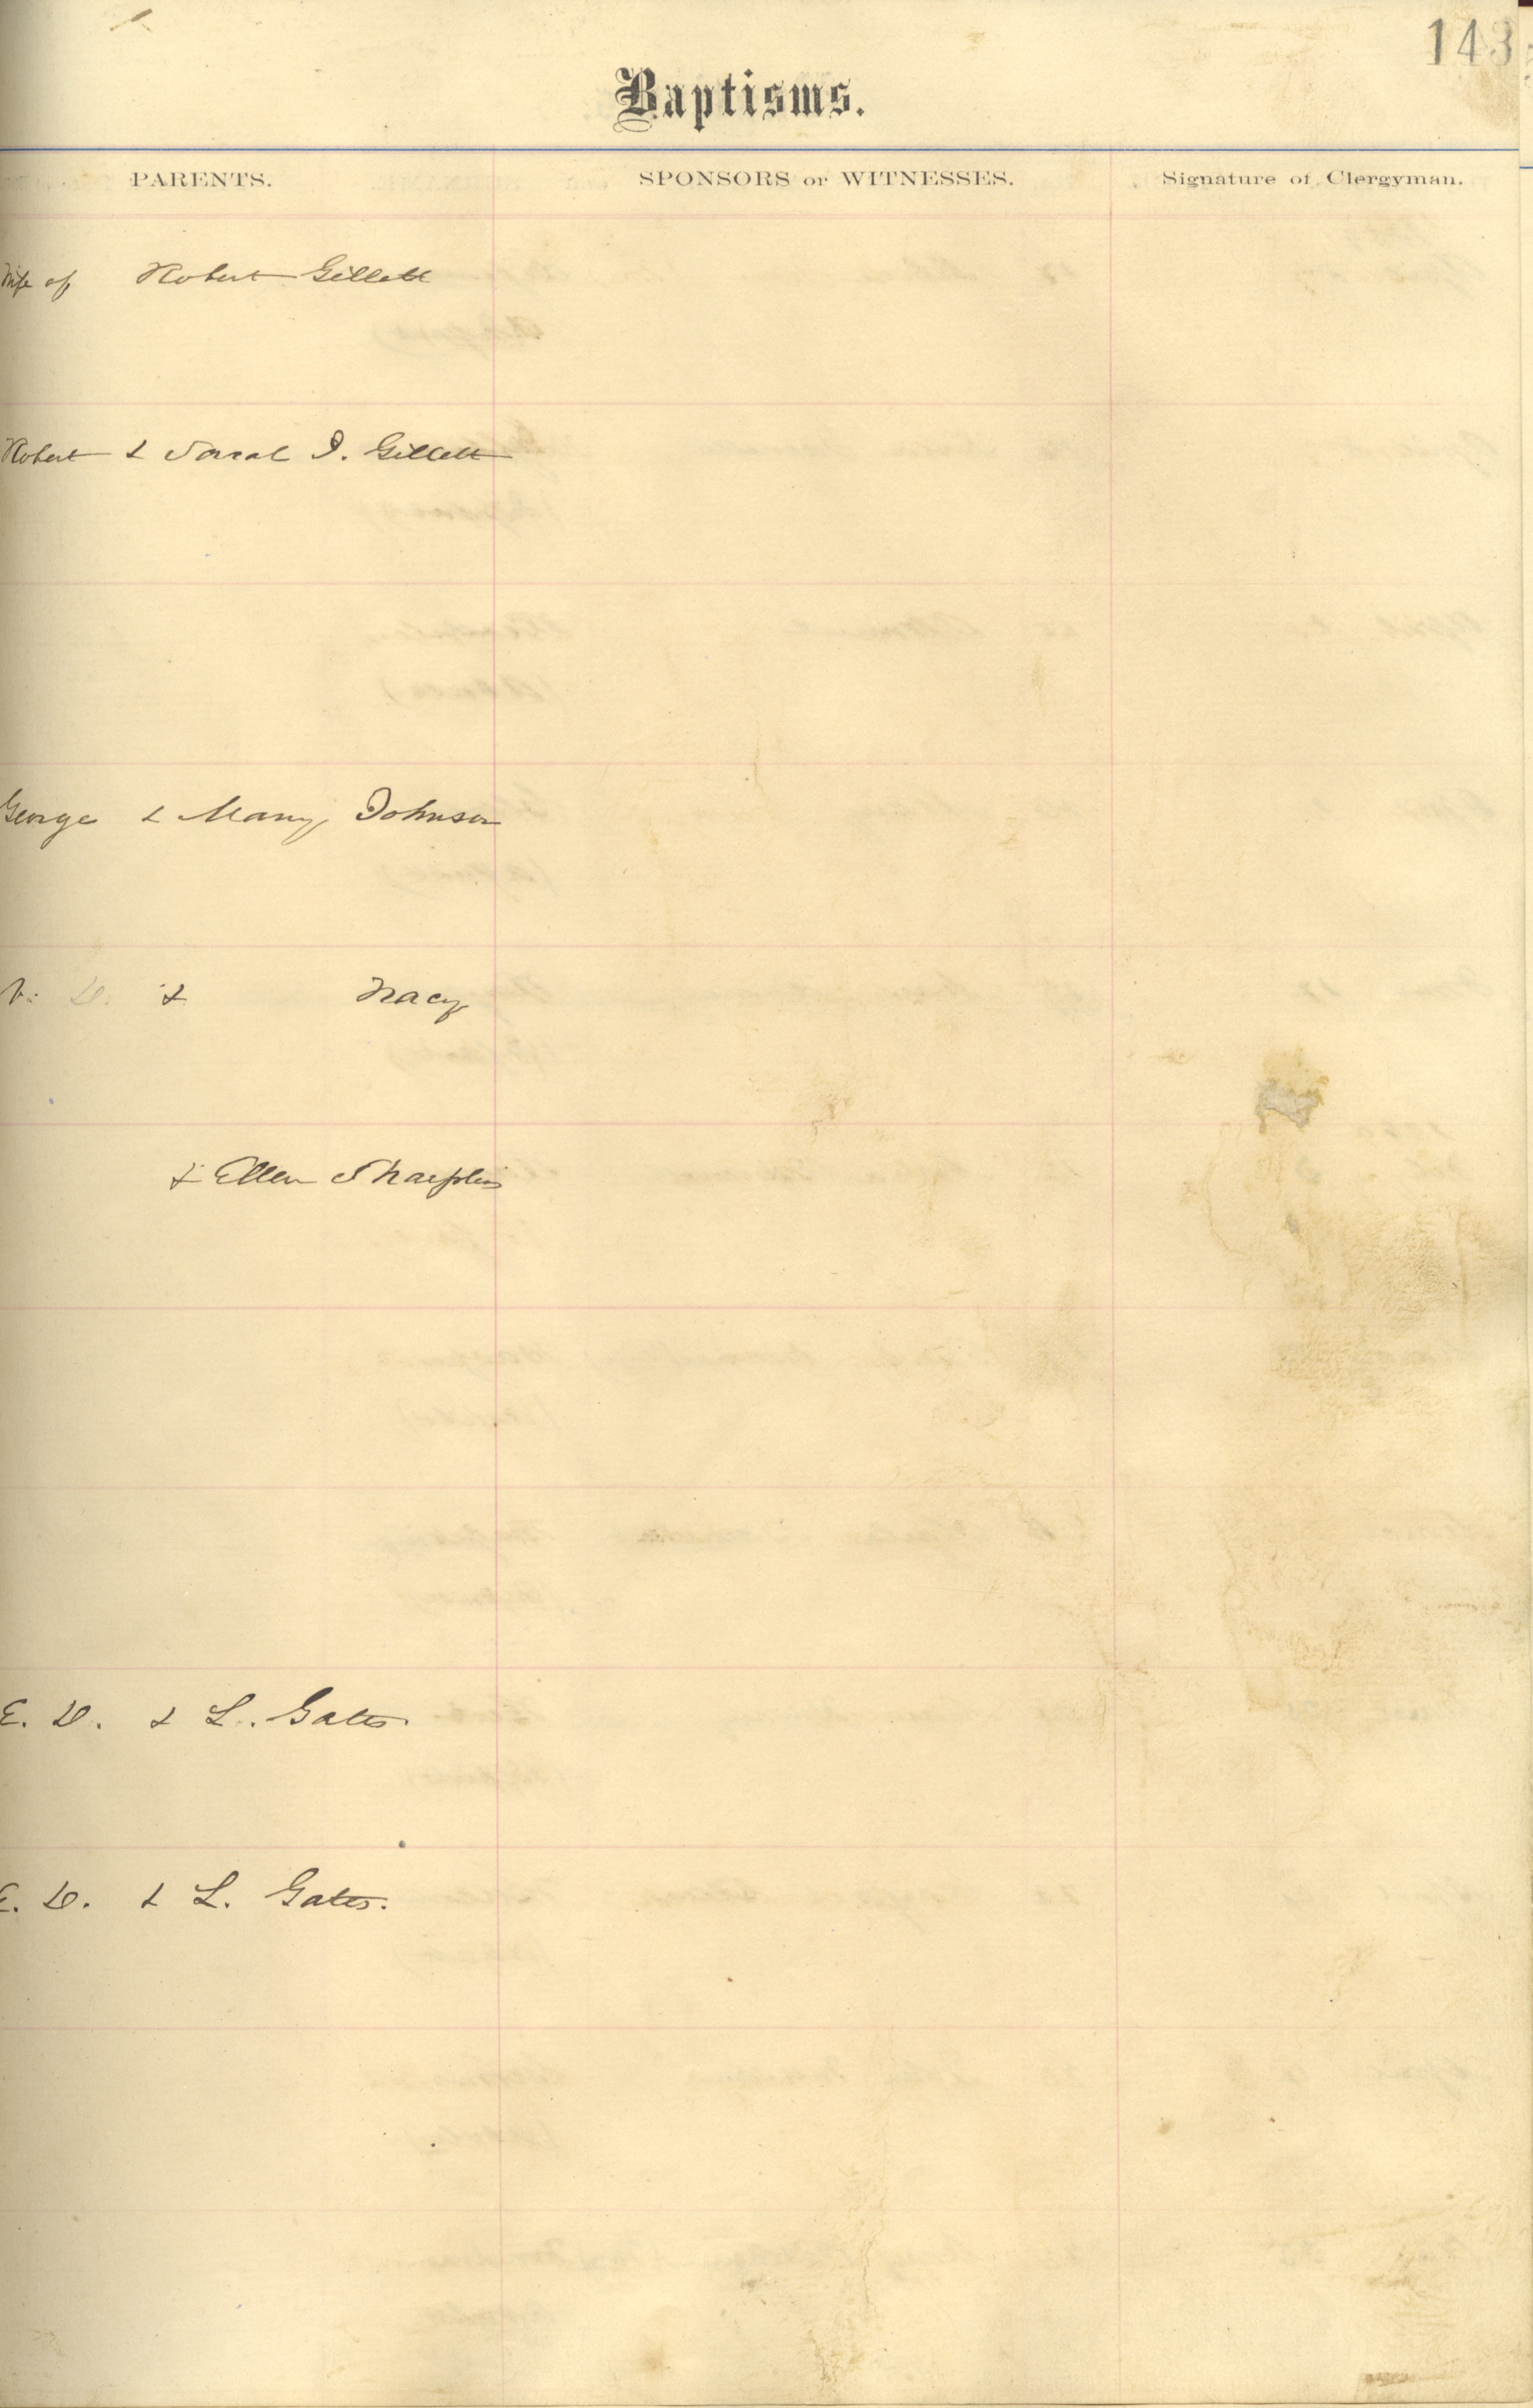 143
Baptisms.
PARENTS. SPONSORS or WITNESSES. Signature of Clergyman.
Wife of Robert Gillett
Robert & Sarah I. Gillett
George & Mary Johnson
D. & Tracy
& Ellen Sharplin
E. D. & L. Gates.
E. D. & L. Gates.